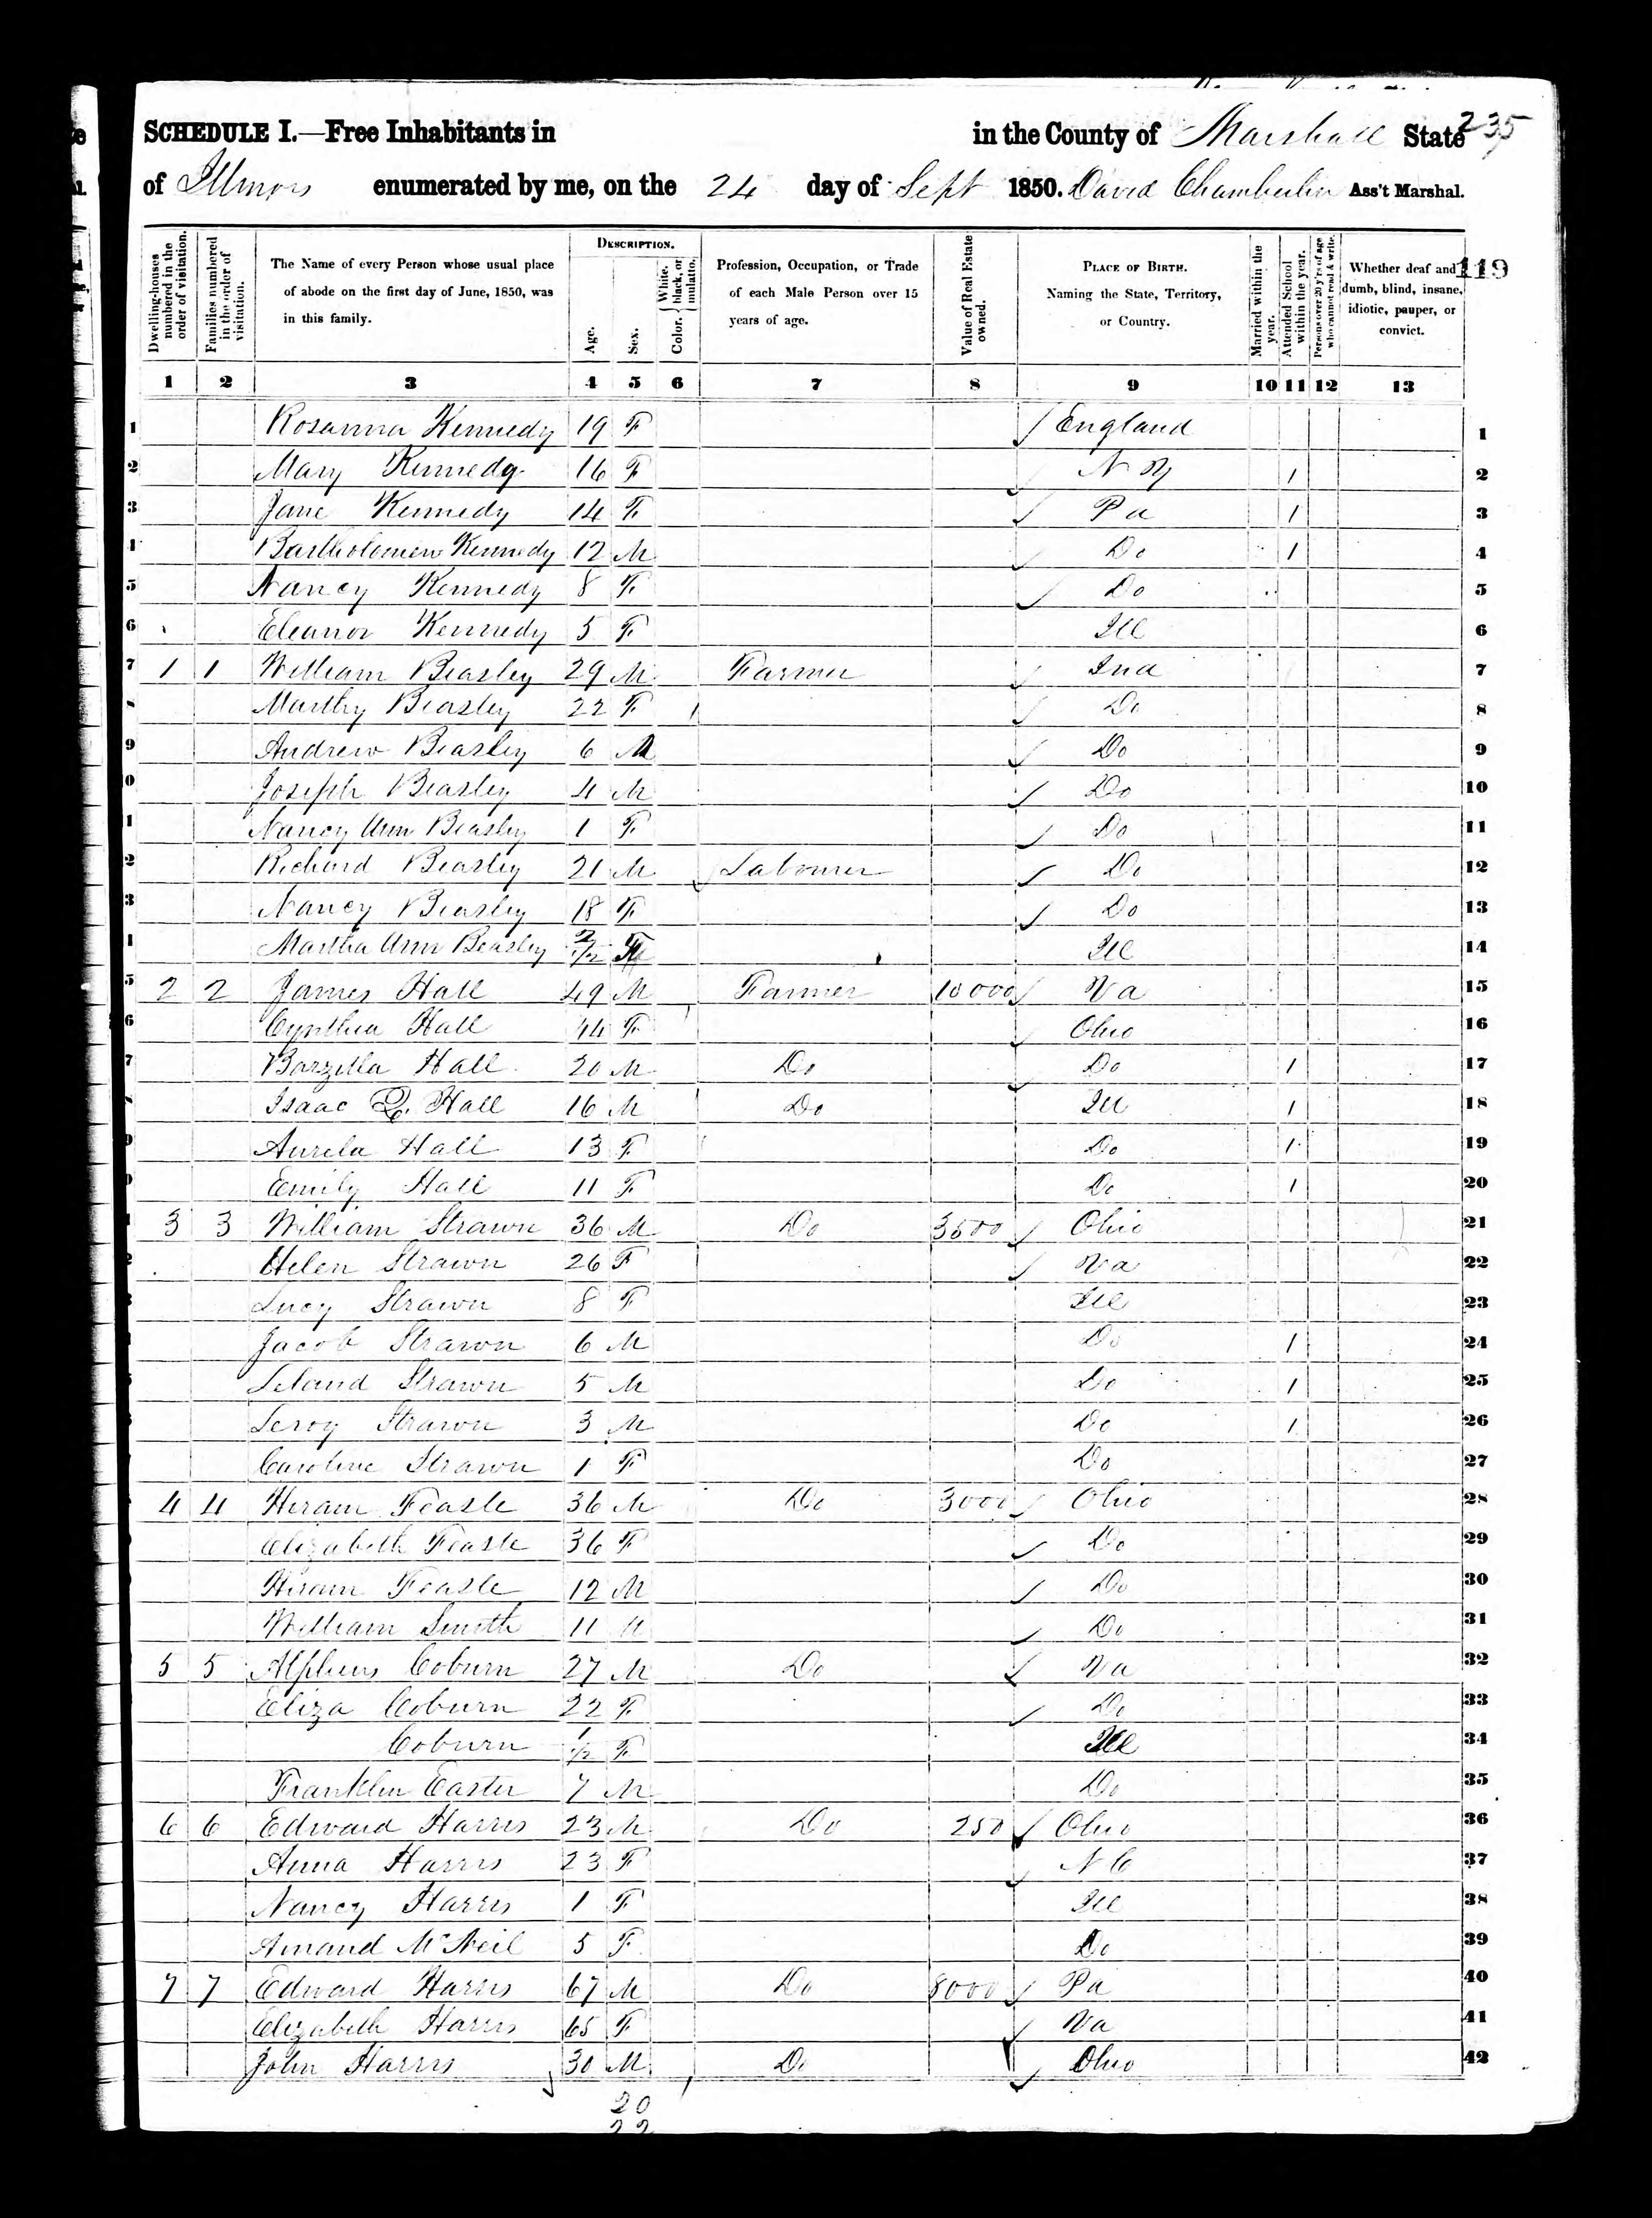 235
SCHEDULE I.—Free Inhabitants in in the County of Marshall State
of Illinois enumerated by me, on the 24 day of Sept 1850. David Chamberlin Ass't Marshal.
119
Dwelling-houses numbered in the order of visitation.
Families numbered in the order of visitation.
The Name of every Person whose usual place of abode on the first day of June, 1850, was in this family.
DESCRIPTION.
Age.
Sex.
Color. { White, black, or mulatto.
Profession, Occupation, or Trade of each Male Person over 15 years of age.
Value of Real Estate owned.
PLACE OF BIRTH. Naming the State, Territory, or Country.
Married within the year.
Attended School within the year.
Persons over 20 y'rs of age who cannot read & write.
Whether deaf and dumb, blind, insane, idiotic, pauper, or convict.
1 2 3 4 5 6 7 8 9 10 11 12 13
1 Rosanna Kennedy 19 F England 1
2 Mary Kennedy 16 F N Y 1 2
3 Jane Kennedy 14 F Pa 1 3
4 Bartholomew Kennedy 12 M Do 1 4
5 Nancy Kennedy 8 F Do 5
6 Eleanor Kennedy 5 F Ill 6
7 1 1 William Beasley 29 M Farmer Ind 7
Marthy Beasley 22 F Do 8
9 Andrew Beasley 6 M Do 9
0 Joseph Beasley 4 M Do 10
1 Nancy Ann Beasley 1 F Do 11
2 Richard Beasley 21 M Labourer Do 12
3 Nancy Beasley 18 F Do 13
Martha Ann Beasley 2/12 F Ill 14
5 2 2 James Hall 49 M Farmer 10000 Va 15
6 Cynthia Hall 44 F Ohio 16
7 Barzilla Hall 20 M Do Do 1 17
Isaac Hall 16 M Do Ill 1 18
Aurela Hall 13 F Do 1 19
Emily Hall 11 F Do 1 20
3 3 William Strawn 36 M Do 3500 Ohio 21
Helen Strawn 26 F Va 22
Lucy Strawn 8 F Ill 23
Jacob Strawn 6 M Do 1 24
Leland Strawn 5 M Do 1 25
Leroy Strawn 3 M Do 1 26
Caroline Strawn 1 F Do 27
4 4 Hiram Feasle 36 M Do 3000 Ohio 28
Elizabeth Feasle 36 F Do 29
Hiram Feasle 12 M Do 30
William Smith 11 M Do 31
5 5 Alpheus Coburn 27 M Do Va 32
Eliza Coburn 22 F Do 33
Coburn 1/12 F Ill 34
Franklin Easter 7 M Do 35
6 6 Edward Harris 23 M Do 250 Ohio 36
Anna Harris 23 F N C 37
Nancy Harris 1 F Ill 38
Amand McNeil 5 F Do 39
7 7 Edward Harris 67 M Do 8000 Pa 40
Elizabeth Harris 65 F Va 41
John Harris 30 M Do Ohio 42
20
22